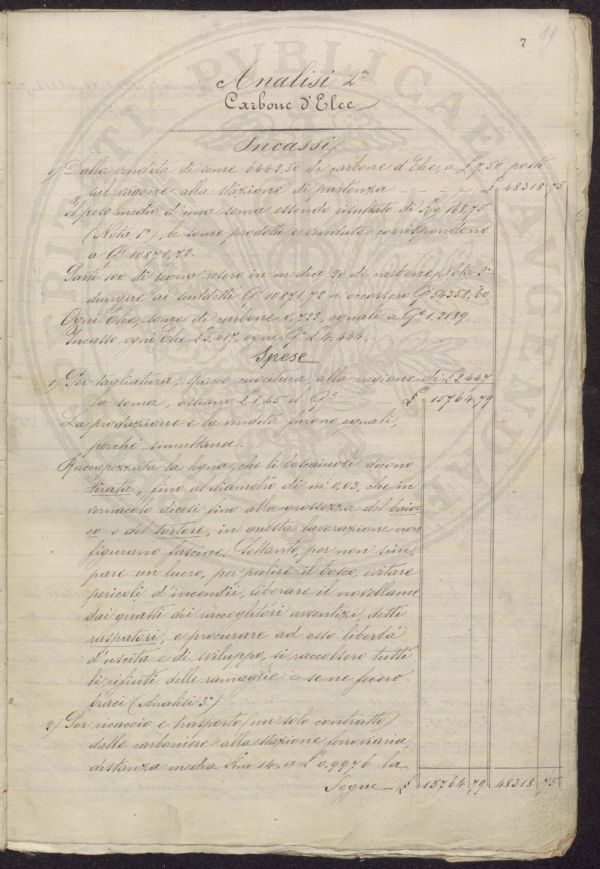 7
Analisi 2ª
Carbone d'Elce
Incassi
1) Dalla vendita di some 6442,50 di carbone d'Elce, a £ 7,50 posto
nel vagone alla stazione di partenza £ 48318,75
Il peso medio d'una soma essendo risultato di Kg 168,75
(Nota 1ª), le some prodotte e vendute corrispondono
a Qˡⁱ 10871,72.
Parti 100 di legno resero in media 20 di carbone (Nota 2ª)
dunque ai suddetti Qˡⁱ 10871,72 n'occorsero Qˡⁱ 54358,60
Ogni Elce, some di carbone 0,722, eguale a Qˡⁱ 1,2189.
Incasso, ogni Elce £ 5,417, ogni Qˡᵉ £ 4,444.
Spese
1) Per tagliatura, spacco, cuocitura alla ragione di £ 2,447
la soma, ossiano £ 1,45 il Qˡᵉ £ 15764,79
La produzione e la vendita furono eguali,
perchè simultanee.
Raccapezzata la legna, che li boscaiuoli dicono
tirata, fino al diametro di m. 0,03, che in
vernacolo dicesi fino alla grossezza del
o del tortore, in questa lavorazione non
figurano fascine. Soltanto, per non sciu-
pare un lucro, per pulire il bosco, evitare
pericoli d'incendii, liberare il novellame
dai guasti dei raccoglitori avventizi, detti
raspatori, e procurare ad esso libertà
d'uscita e di sviluppo, si raccolsero tutti
li rifiuti delle ramaglie e se ne fecero
(Analisi 3ª)
2) Per ricaccio e trasporto (un solo contratto)
dalle carboniere alla stazione ferroviaria,
distanza media Km 14, a £ 0,9976 la
Segue £ 15764,79 48318,75